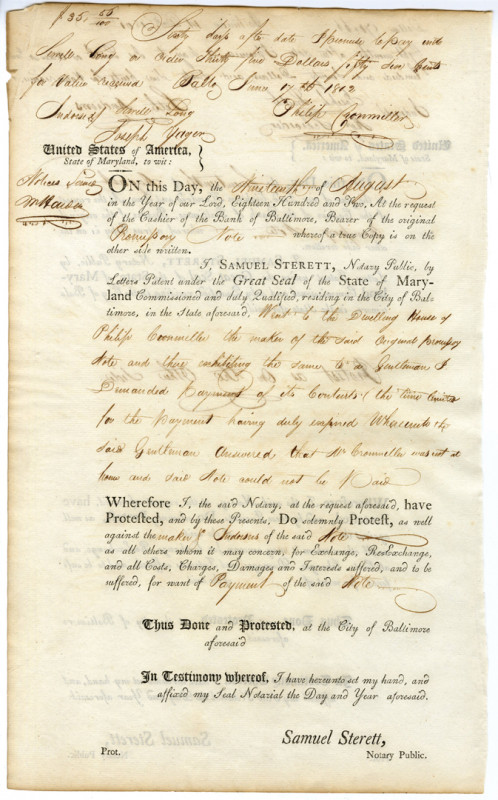 $35. 56/100 Sixty days after date I promise to pay unto
Sewell Long or Order Thirty five Dollars, fifty six Cents
for Value received Balto June 17th 1802
Indorsed Sewell Long Philip Cronmiller
Joseph Jager
United States of America,
State of Maryland, to wit:
Notices
ON this Day, the Nineteenth of August
in the Year of our Lord, Eighteen Hundred and Two, At the request
of the Cashier of the Bank of Baltimore, Bearer of the original
Promissory Note whereof a true Copy is on the
other side written.
I, SAMUEL STERETT, Notary Public, by
Letters Patent under the Great Seal of the State of Mary-
land Commissioned and duly Qualified, residing in the City of Bal-
timore, in the State aforesaid. Went to the Dwelling House of
Philip Cronmiller the maker of the said Original promissory
Note and there exhibiting the same to a Gentleman I
Demanded Payment of its Contents (the time limited
for the Payment having duly expired Whereunto the
said Gentleman answered that Mr Cronmiller was not at
home and said Note would not be Paid
Wherefore I, the said Notary, at the request aforesaid, have
Protested, and by these Presents, Do solemnly Protest, as well
against the maker & Indorsers of the said Note
as all others whom it may concern, for Exchange, Re-Exchange,
and all Costs, Charges, Damages and Interests suffered, and to be
suffered, for want of Payment of the said Note
Thus Done and Protested, at the City of Baltimore
aforesaid
In Testimony whereof, I have hereunto set my hand, and
affixed my Seal Notarial the Day and Year aforesaid.
Samuel Sterett,
Prot. Notary Public.